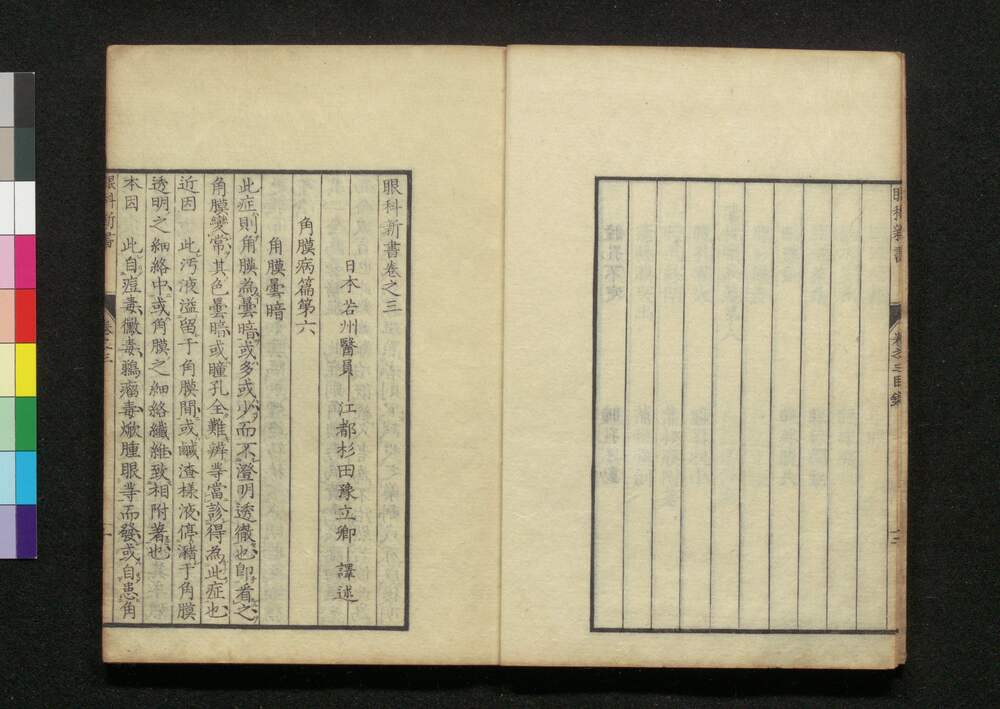 眼科新書
卷之三目錄
眼科新書卷之三
日本 若州醫員 江都杉田豫立卿 譯述
角膜病篇第六
角膜曇暗
此症則角膜為曇暗或多或少而不澄明透徹也即看之
角膜變常其色曇暗或瞳孔全難辨等當診得為此症也
近因 此汚液溢留于角膜間或鹹渣樣液停瀦于角膜
透明之細絡中或角膜之細絡纖維致相附著也
本因 此自痘毒黴毒瘰瘤毒焮腫眼等而發或自患角
眼科新書
卷之三
一